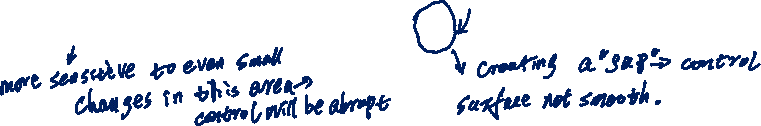 more sensitive to even small
changes in this area →
control will be abrupt
creating a "gap" → control
surface not smooth.